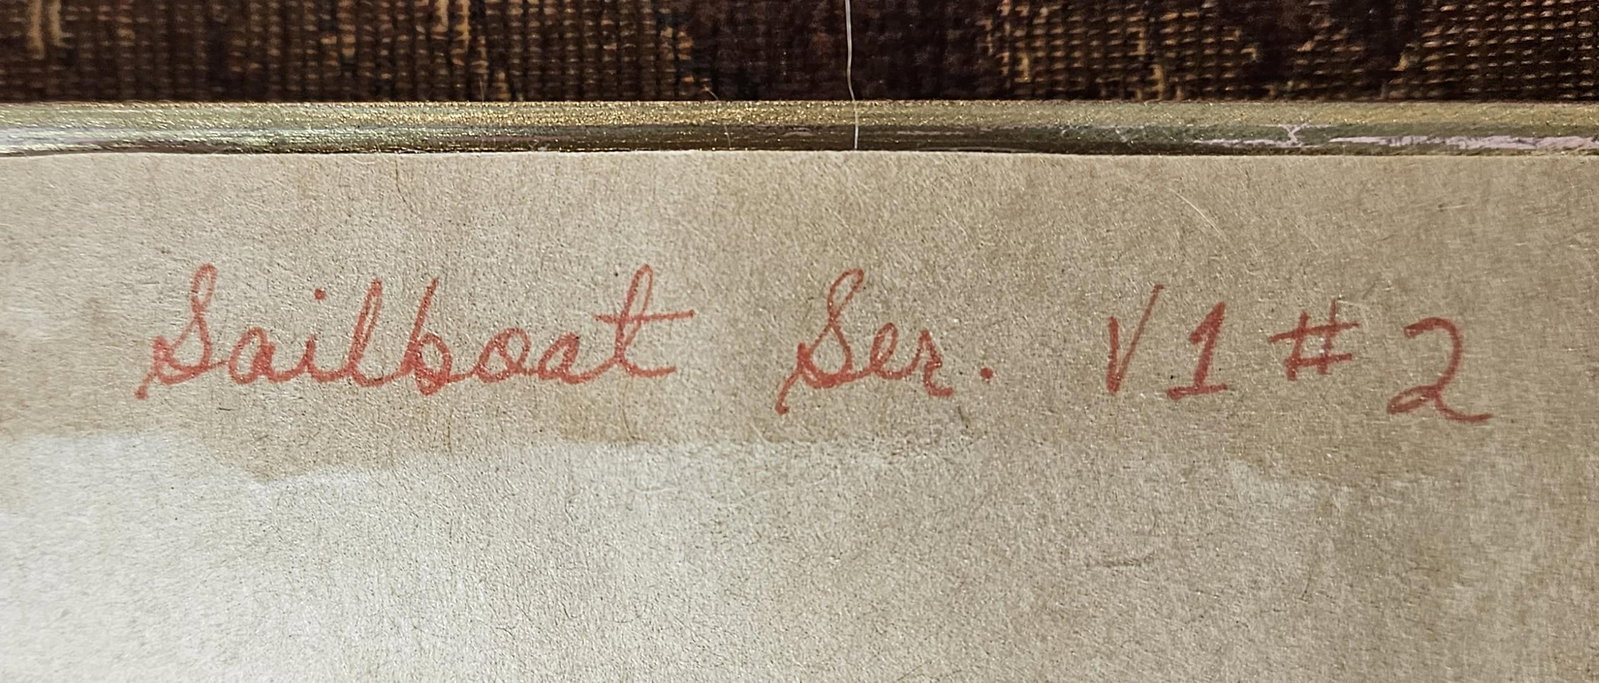 Sailboat Ser. V1 #2